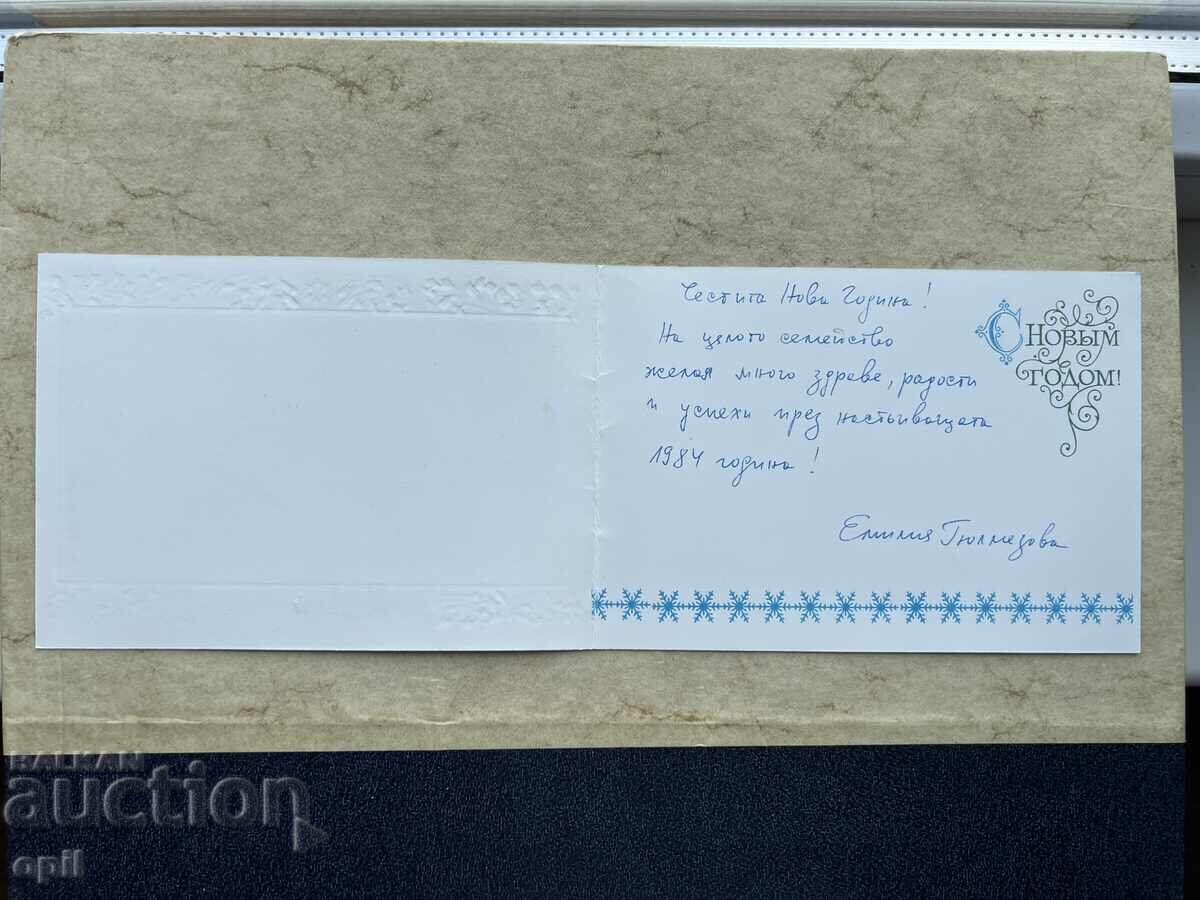 Честита Нова Година!
На цялото семейство
желая много здраве, радости
и успехи през настъпващата
1984 година!
Емилия Гюлмезова
С Новым
годом!
BALKAN
auction
opil